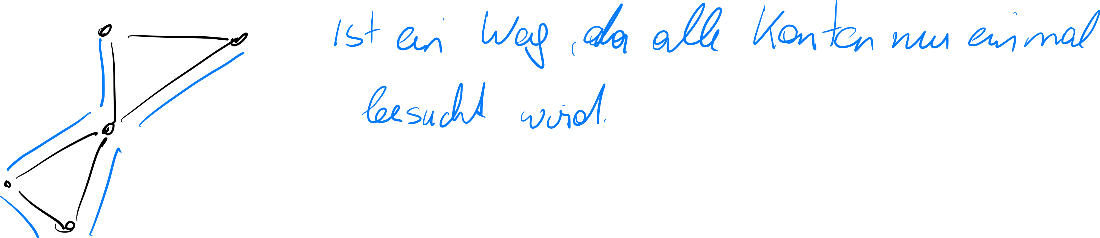 Ist ein Weg, da alle Kanten nur einmal
besucht wird.